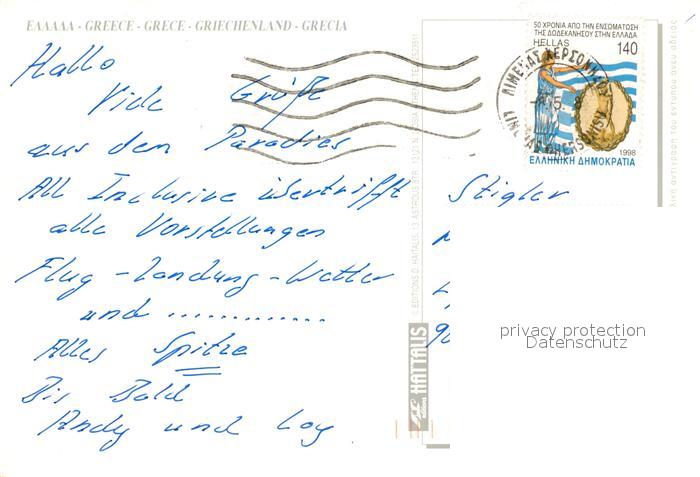 ΕΛΛΑΔΑ - GREECE - GRECE - GRIECHENLAND - GRECIA
Hallo
Viele Grüße
aus dem Paradies
All Inclusive übertrifft
alle Vorstellungen
Flug - Landung - Wetter
und .............
Alles Spitze
Bis Bald
Andy und
50 ΧΡΟΝΙΑ ΑΠΟ ΤΗΝ ΕΝΣΩΜΑΤΩΣΗ
ΤΗΣ ΔΩΔΕΚΑΝΗΣΟΥ ΣΤΗΝ ΕΛΛΑΔΑ
HELLAS 140
1998
ΕΛΛΗΝΙΚΗ ΔΗΜΟΚΡΑΤΙΑ
ΛΙΜΕΝΑΣ ΧΕΡΣΟΝΗΣΟΥ
Stigler
privacy protection
Datenschutz
© EDITIONS D. HAITALIS, 13, ASTROUS STR.
HAITALIS